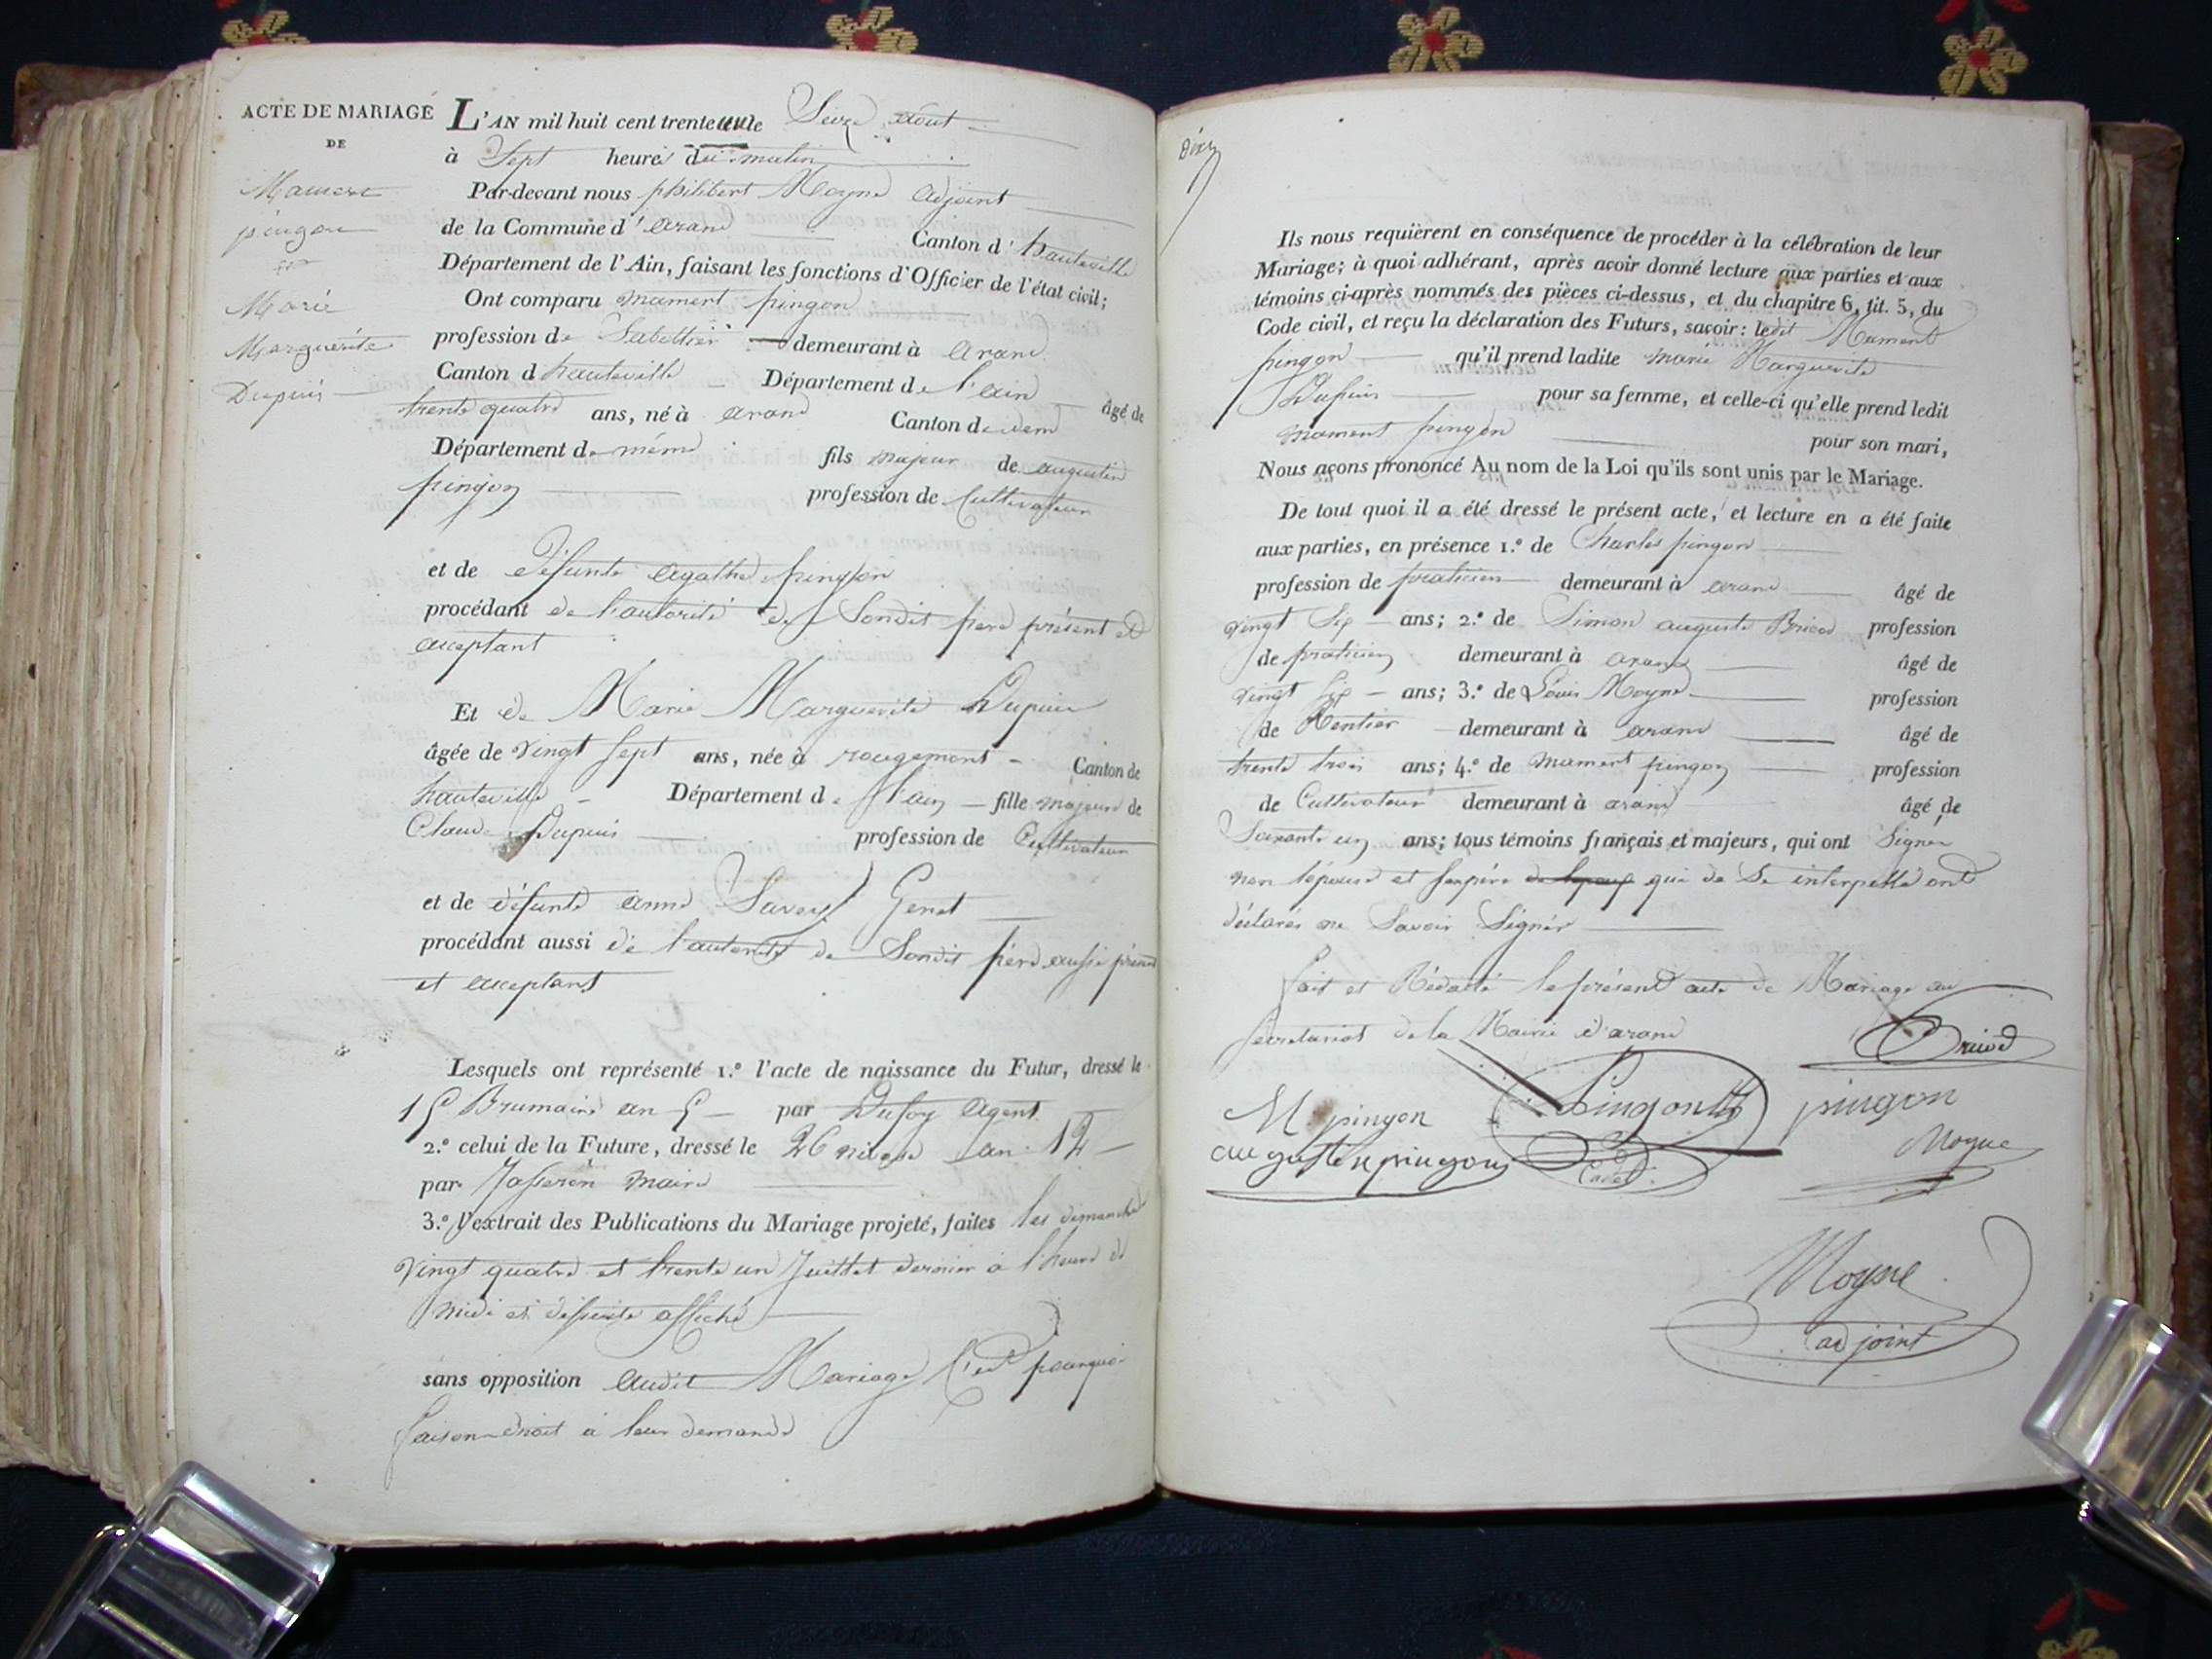 ACTE DE MARIAGE
DE
Mamert
pingon
et
Marie
Marguerite
Dupuis
L'AN mil huit cent trente un le Seize aout
à Sept heures du matin
Par-devant nous philibert Moyne adjoint
de la Commune d'arand Canton d'hauteville
Département de l'Ain, faisant les fonctions d'Officier de l'état civil;
Ont comparu mamert pingon
profession de Sabottier demeurant à arand
Canton d hauteville Département de l'ain âgé de
trente quatre ans, né à arand Canton de
Département de même fils majeur de augustin
pingon profession de Cultivateur
et de défunte agathe pingon
procédant de l'autorité de Sondit pere présent et
acceptant
Et de Marie Marguerite Dupuis
âgée de vingt sept ans, née à rougemont Canton de
hauteville Département de l'ain fille majeure de
Claude Dupuis profession de Cultivateur
et de défunte anne Savey Genet
procédant aussi de l'autorité de Sondit pere aussi présent
et acceptant
Lesquels ont représenté 1.º l'acte de naissance du Futur, dressé le
15 Brumaire an 5 par Dufoy agent
2.º celui de la Future, dressé le 26 nivose an 12
par Jasseron maire
3.º l'extrait des Publications du Mariage projeté, faites les dimanche
vingt quatre et trente un Juillet dernier a l'heure de
midi et desuite affiché
sans opposition audit Mariage C'est pourquoi
faison droit a leur demande
Dix
Ils nous requièrent en conséquence de procéder à la célébration de leur
Mariage; à quoi adhérant, après avoir donné lecture aux parties et aux
témoins ci-après nommés des pièces ci-dessus, et du chapitre 6, tit. 5, du
Code civil, et reçu la déclaration des Futurs, savoir: ledit Mamert
pingon qu'il prend ladite marie Marguerite
Dupuis pour sa femme, et celle-ci qu'elle prend ledit
mamert pingon pour son mari,
Nous avons prononcé Au nom de la Loi qu'ils sont unis par le Mariage.
De tout quoi il a été dressé le présent acte, et lecture en a été faite
aux parties, en présence 1.º de Charles pingon
profession de praticien demeurant à arand âgé de
vingt Six ans; 2.º de Simon auguste Brived profession
de praticien demeurant à arand âgé de
vingt Six ans; 3.º de Louis Moyne profession
de Rentier demeurant à arand âgé de
trente trois ans; 4.º de mamert pingon profession
de Cultivateur demeurant à arand âgé de
Soixante un ans; tous témoins français et majeurs, qui ont Signer
non l'épouse et Son père qui de Se interpellé ont
déclarés ne Savoir Signér
fait et Rédacté le présent acte de Mariage au
Secretariat de la Mairie d'arand
Brived
M. pingon
Pingon
pingon
augustin pingon
Cadet
Moyne
Moyne
adjoint